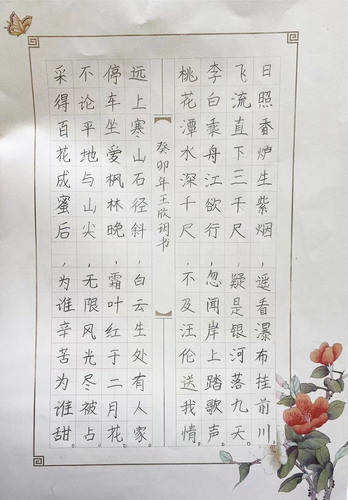 日照香炉生紫烟,遥看瀑布挂前川。
飞流直下三千尺,疑是银河落九天。
李白乘舟江欲行,忽闻岸上踏歌声。
桃花潭水深千尺,不及汪伦送我情。
【癸卯年王欣玥书】
远上寒山石径斜,白云生处有人家。
停车坐爱枫林晚,霜叶红于二月花。
不论平地与山尖,无限风光尽被占。
采得百花成蜜后,为谁辛苦为谁甜。